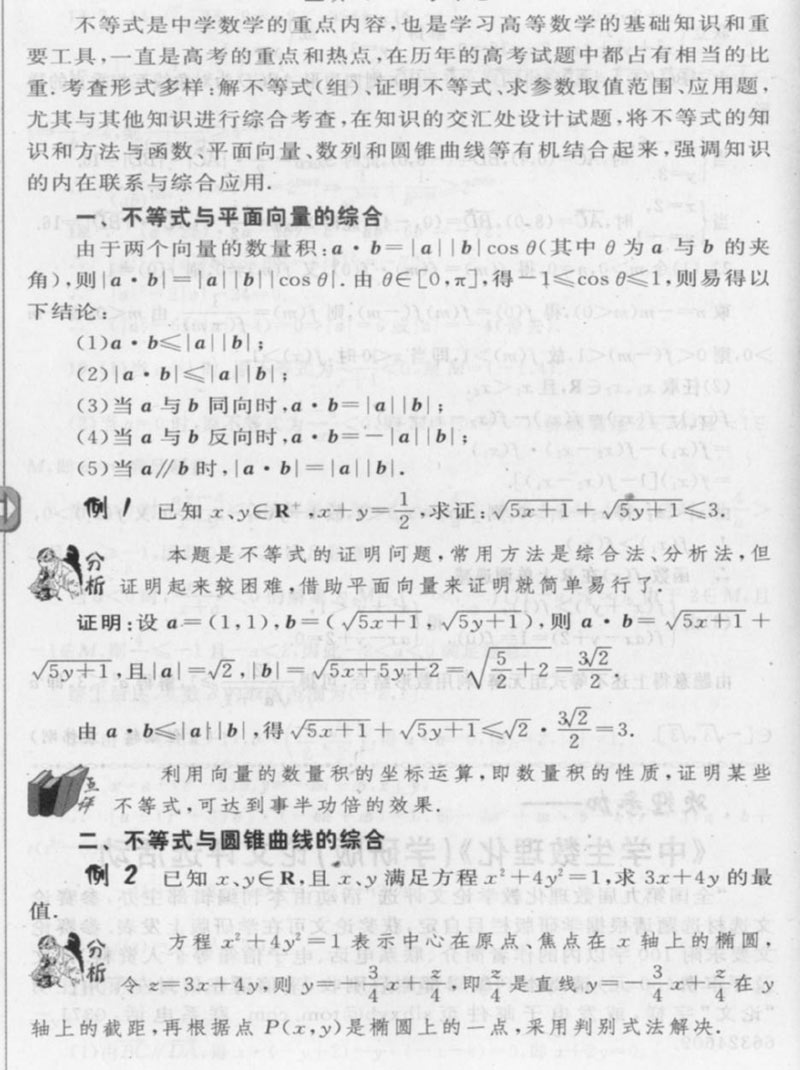 不等式是中学数学的重点内容,也是学习高等数学的基础知识和重
要工具,一直是高考的重点和热点,在历年的高考试题中都占有相当的比
重.考查形式多样:解不等式(组)、证明不等式、求参数取值范围、应用题,
尤其与其他知识进行综合考查,在知识的交汇处设计试题,将不等式的知
识和方法与函数、平面向量、数列和圆锥曲线等有机结合起来,强调知识
的内在联系与综合应用.
一、不等式与平面向量的综合
由于两个向量的数量积:a·b=|a||b|cos θ(其中 θ 为 a 与 b 的夹
角),则|a·b|=|a||b||cos θ|.由 θ∈[0,π],得-1≤cos θ≤1,则易得以
下结论:
(1)a·b≤|a||b|;
(2)|a·b|≤|a||b|;
(3)当 a 与 b 同向时,a·b=|a||b|;
(4)当 a 与 b 反向时,a·b=-|a||b|;
(5)当 a∥b 时,|a·b|=|a||b|.
例 1 已知 x、y∈R⁺,x+y=1/2,求证:√(5x+1)+√(5y+1)≤3.
分析 本题是不等式的证明问题,常用方法是综合法、分析法,但
证明起来较困难,借助平面向量来证明就简单易行了.
证明:设 a=(1,1),b=(√(5x+1),√(5y+1)),则 a·b=√(5x+1)+
√(5y+1),且|a|=√2,|b|=√(5x+5y+2)=√(5/2+2)=3√2/2,
由 a·b≤|a||b|,得√(5x+1)+√(5y+1)≤√2·3√2/2=3.
点评 利用向量的数量积的坐标运算,即数量积的性质,证明某些
不等式,可达到事半功倍的效果.
二、不等式与圆锥曲线的综合
例 2 已知 x、y∈R,且 x、y 满足方程 x²+4y²=1,求 3x+4y 的最
值.
分析 方程 x²+4y²=1 表示中心在原点、焦点在 x 轴上的椭圆,
令 z=3x+4y,则 y=-3/4x+z/4,即z/4是直线 y=-3/4x+z/4在 y
轴上的截距,再根据点 P(x,y)是椭圆上的一点,采用判别式法解决.